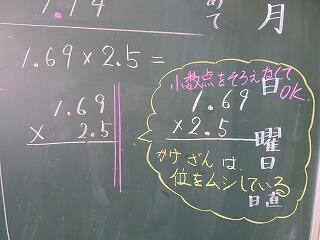 1.69×2.5=
1.69
× 2.5
小数点をそろえなくて
OK.
1.69
×2.5
かけざんは、
位をムシしている
月
日
曜
日
日直